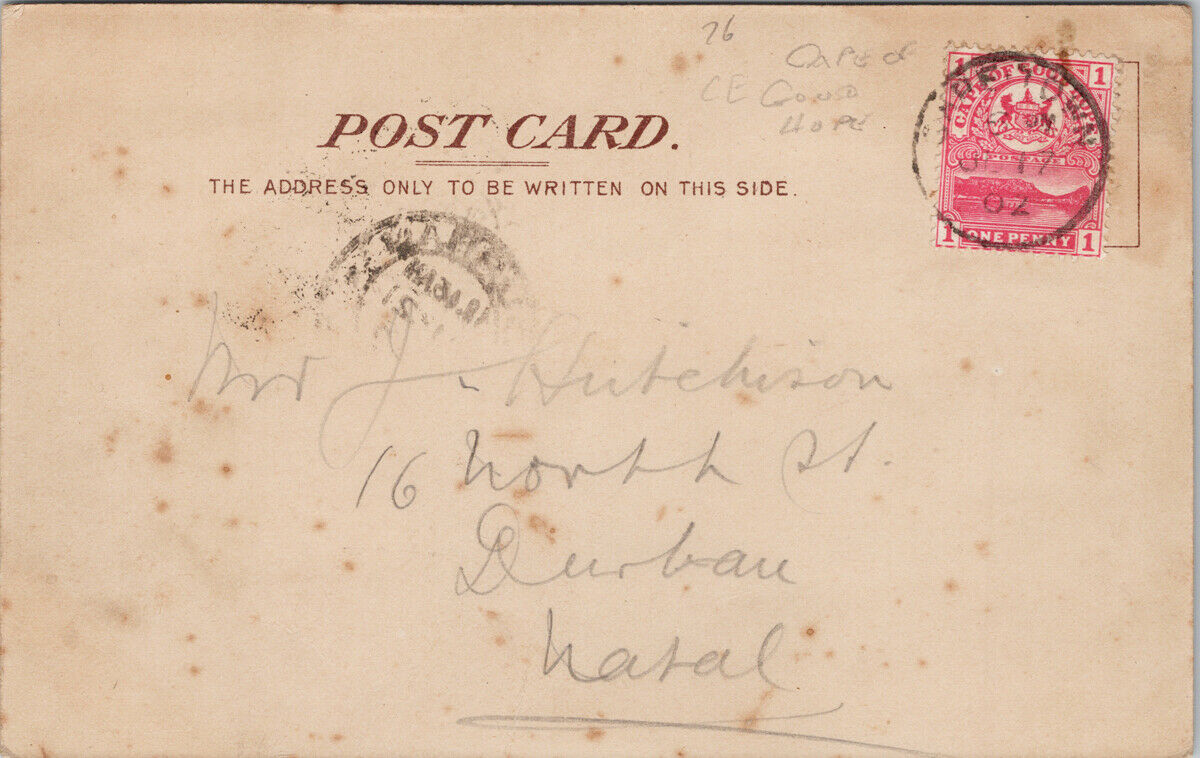 26
CAPE OF
GOOD
HOPE
POST CARD.
THE ADDRESS ONLY TO BE WRITTEN ON THIS SIDE.
1 1
CAPE OF GOOD HOPE
POSTAGE
1 ONE PENNY 1
17
02
J. Hutchison
16 North St.
Durban
Natal